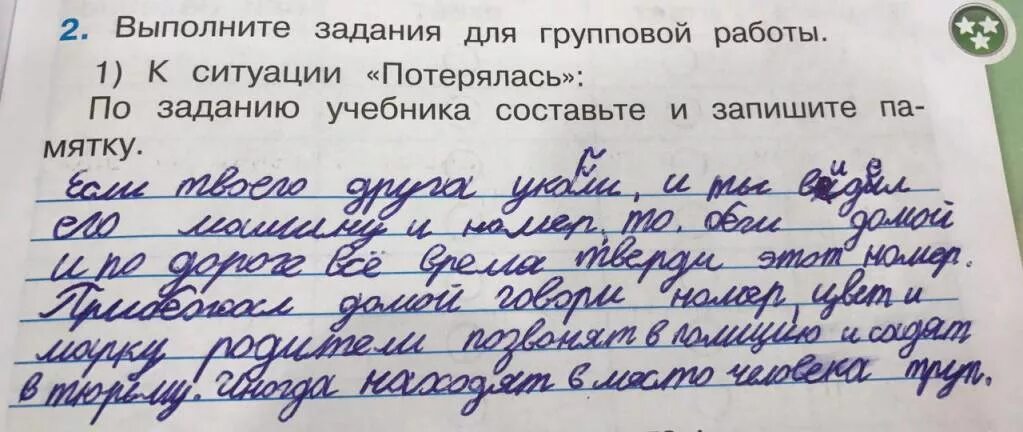 2. Выполните задания для групповой работы.
1) К ситуации «Потерялась»:
По заданию учебника составьте и запишите па-
мятку.
Если твоего друга укали, и ты видел
его машину и номер, то. беги домой
и по дороге всё время тверди этот номер.
Прибежал домой говори номер, цвет и
марку родители позвонят в полицию и садят
в тюрьму. Иногда находят в место человека труп.